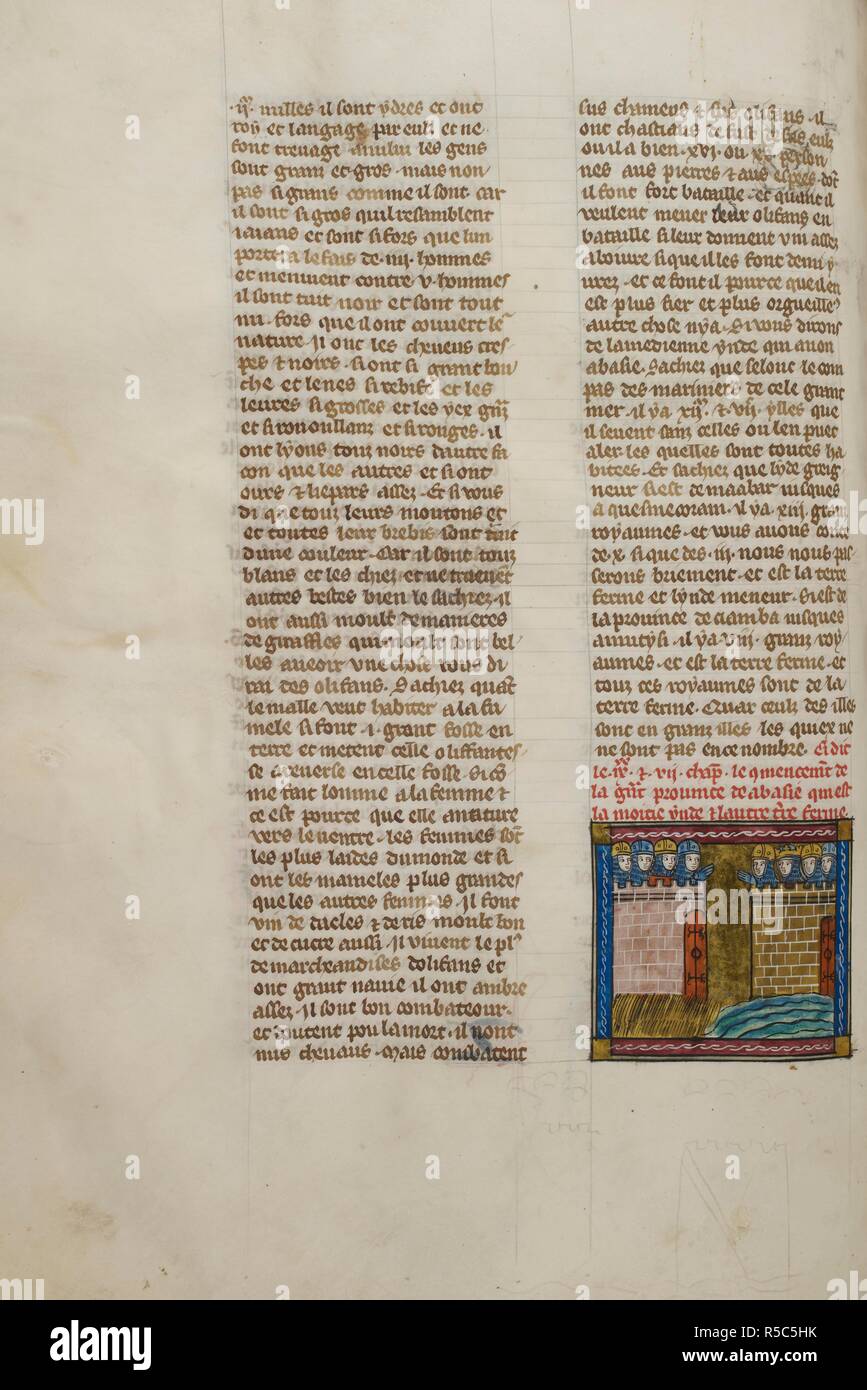 milles il sont ydres et ont
roy et langage par eulz et ne
font treuage a nului les gens
sont grant et gros mais non
pas si grans comme il sont car
il sont si gros quil resamblent
iaians et sont si fors que lun
porte a le fais de .iiij. hommes
et meniuent contre v. hommes
il sont tuit noir et sont tout
nu fors que il ont couuert le
nature. Il ont les cheueus cres
pes & noirs. si ont si grant bou
che et le nes si rebiffe et les
leures si grosses et les yex
et si rouges. il
ont lyons touz noirs dautre fa
con que les autres et si ont
ours & liepars assez. Et si vous
di que touz leurs moutons et
et toutes leur brebis sont tuit
dune couleur. Car il sont touz
blans et les chiez et ne treuuet
autres bestes bien le sachiez. il
ont aussi moult de manieres
de giraffles qui sont bel
les a ueoir vne chose vous di
rai des olifans. Sachiez quant
le malle veut habiter a la fu
mele si font .i. grant fosse en
terre et metent celle oliffantes
se a reuerse en celle fosse. Si
me fait lomme a la femme &
ce est pource que elle a nature
vers le uentre. les femmes sont
les plus laides du monde et si
ont les mameles plus grandes
que les autres femmes. Il font
vin de dacles & de ris moult bon
et de cucre aussi. Il viuent le pl
de marcheandises dolifans et
ont grant nauie il ont ambre
assez. Il sont bon combateour
et doutent pou la mort. il nont
nus cheuaus. Mais combatent
sus chameus & sus olifans. il
ont chastiaus de fust
ou il a bien .xvi. ou .xx. person
nes aus pierres & aus espees dot
il font fort bataille. et quant il
veulent mener leur olifans en
bataille si leur donnent vin assez
a boiure si que il les font demi y
urez. et ce font il pource que il en
est plus fier et plus orgueille
autre chose ny a. Si vous dirons
de la medienne ynde qui a non
abasie. Sachiez que selonc le com
pas des mariniers de cele grant
mer. il y a .xij. & .vij. ylles que
il seuent sanz celles ou len puet
aler les quelles sont toutes ha
bitees. Et sachiez que lynde greig
neur si est de maabar iusques
a quesmecoram. il y a .xiij. granz
royaumes. et vous auons conte
de .x. si que des .iij. nous nous pas
serons briement. et est la terre
ferme et lynde meneur. Si est de
la prouince de ciamba iusques
a mutysi. il y a .viij. granz roy
aumes. et est la terre ferme. et
touz ces royaumes sont de la
terre ferme. Quar ceulz des illes
sont en granz illes les quiex ne
ne sont pas en ce nombre. Ci dit
le & .vij. chap. le qmencement de
la grant prouince de abasie qui est
la moitie ynde & lautre terre ferme
alamy
Image ID: R5C5HK
www.alamy.com